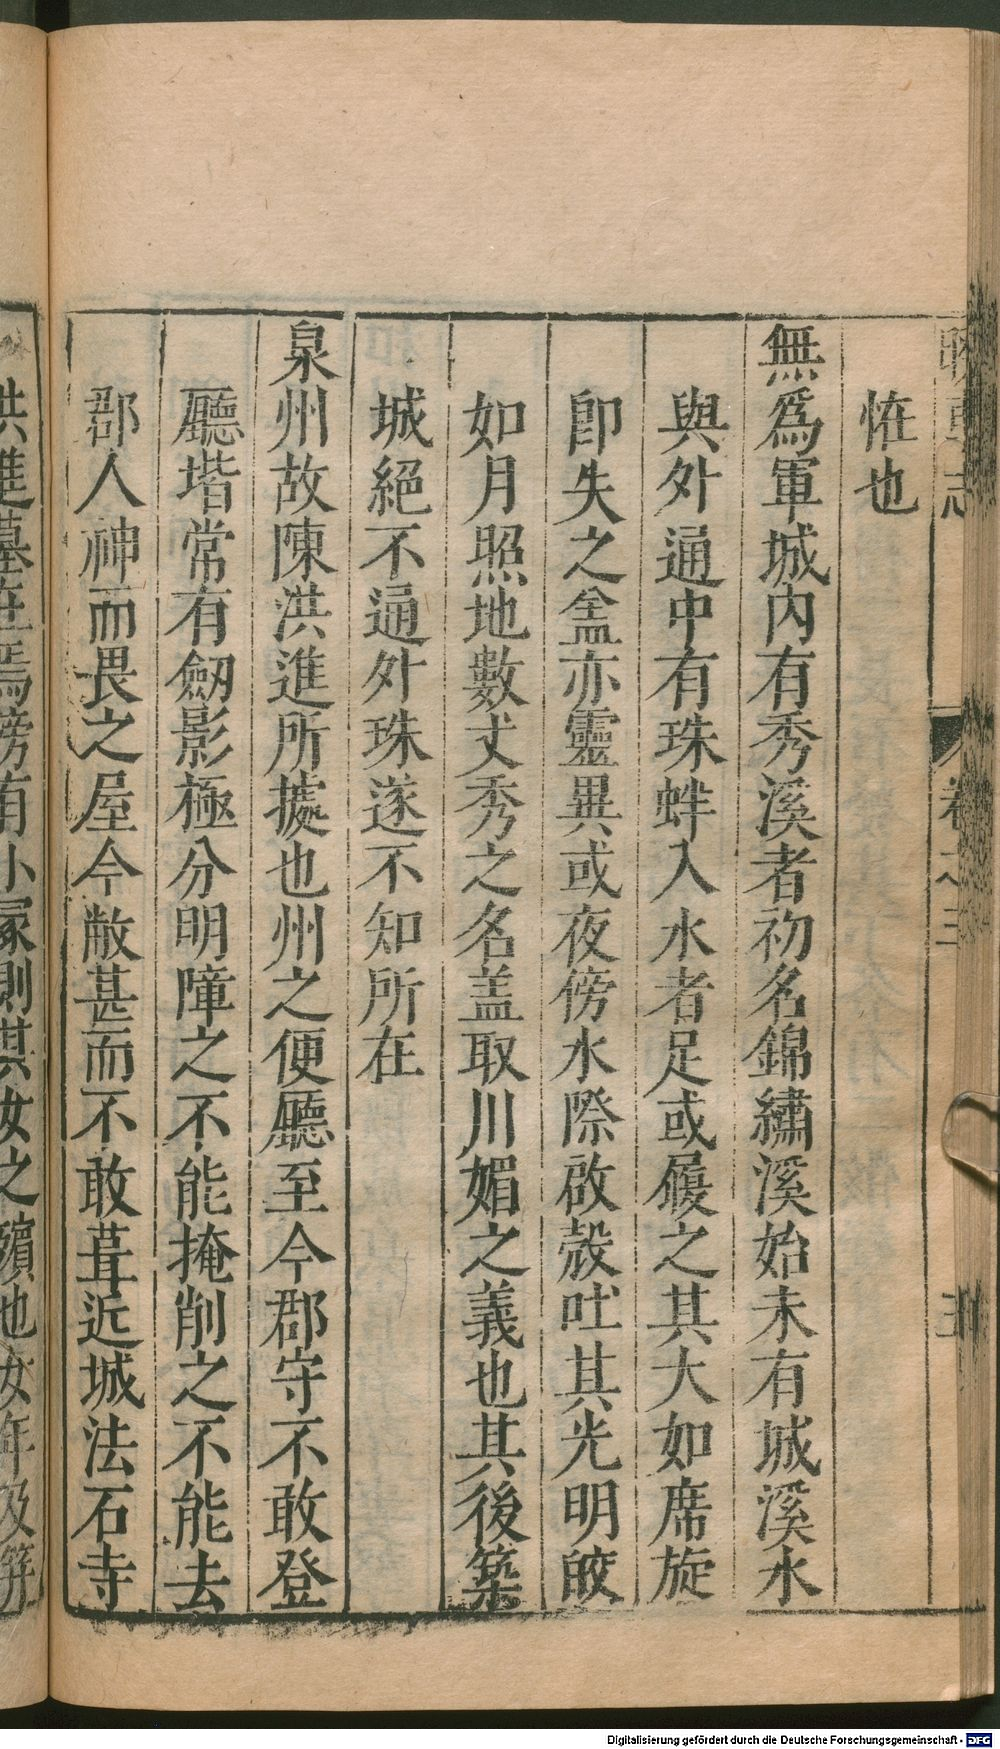 睽車志
卷之三
五
恠也
無爲軍城內有秀溪者初名錦繡溪始未有城溪水
與外通中有珠蚌入水者足或履之其大如席旋
卽失之盖亦靈異或夜傍水際啟殼吐其光明皎
如月照地數丈秀之名盖取川媚之義也其後築
城絕不通外珠遂不知所在
泉州故陳洪進所據也州之便廳至今郡守不敢登
廳堦常有劔影極分明障之不能掩削之不能去
郡人神而畏之屋今敝甚而不敢葺近城法石寺
洪進墓在焉傍有小冢則其女之殯也女年及筓
Digitalisierung gefördert durch die Deutsche Forschungsgemeinschaft - DFG